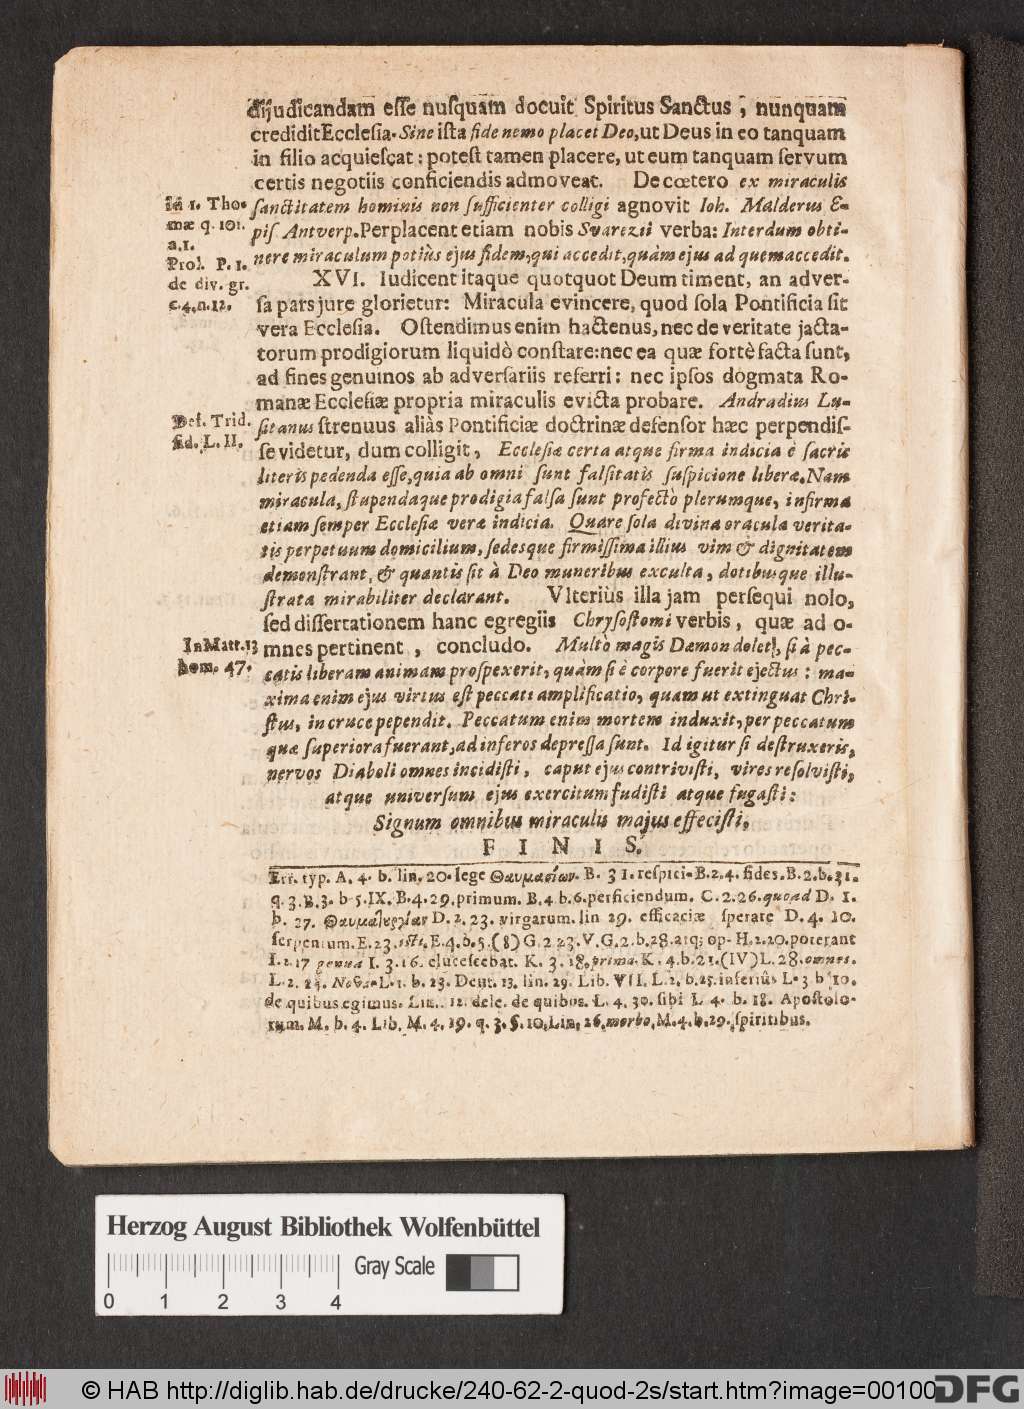 dijudicandam esſe nuſquam docuit Spiritus Sanctus, nunquam
crediditEccleſia. Sine iſta fide nemo placet Deo, ut Deus in eo tanquam
in filio acquieſcat: poteſt tamen placere, ut eum tanquam ſervum
certis negotiis conficiendis admoveat. De cœtero ex miraculis
In 1. Tho-
mæ q. 101.
a.1.
ſanctitatem hominis non ſufficienter colligi agnovit Ioh. Malderus E-
piſ Antverp. Perplacent etiam nobis Svarezii verba: Interdum obti-
Prol. P. 1.
de div. gr.
c.4.n.12.
nere miraculum potiùs ejus fidem, qui accedit, quàm ejus ad quem accedit.
XVI. Iudicent itaque quotquot Deum timent, an adver-
ſa pars jure glorietur: Miracula evincere, quod ſola Pontificia ſit
vera Eccleſia. Oſtendimus enim hactenus, nec de veritate jacta-
torum prodigiorum liquidò conſtare: nec ea quæ fortè facta ſunt,
ad fines genuinos ab adverſariis referri: nec ipſos dogmata Ro-
manæ Eccleſiæ propria miraculis evicta probare. Andradius Lu-
Def. Trid.
fid. L. II.
ſitanus ſtrenuus aliàs Pontificiæ doctrinæ defenſor hæc perpendiſ-
ſe videtur, dum colligit, Eccleſiæ certa atque firma indicia è ſacris
literis pedenda eſſe, quia ab omni ſunt falſitatis ſuſpicione liberæ. Nam
miracula, ſtupendaque prodigia falſa ſunt profectò plerumque, infirma
etiam ſemper Eccleſiæ veræ indicia. Quare ſola divina oracula verita-
tis perpetuum domicilium, ſedesque firmiſſima illius vim & dignitatem
demonſtrant, & quantis ſit à Deo muneribus exculta, dotibusque illu-
ſtrata mirabiliter declarant. Vlterius illa jam perſequi nolo,
ſed diſſertationem hanc egregiis Chryſoſtomi verbis, quæ ad o-
In Matt. 13
hom. 47.
mnes pertinent, concludo. Multò magis Dæmon dolet, ſi à pec-
catis liberam animam proſpexerit, quàm ſi è corpore fuerit ejectus: ma-
xima enim ejus virtus eſt peccati amplificatio, quam ut extinguat Chri-
ſtus, in cruce pependit. Peccatum enim mortem induxit, per peccatum
quæ ſuperiora fuerant, ad inferos depreſſa ſunt. Id igitur ſi deſtruxeris,
nervos Diaboli omnes incidiſti, caput ejus contriviſti, vires reſolviſti,
atque univerſum ejus exercitum fudiſti atque fugaſti:
Signum omnibus miraculis majus effeciſti.
F I N I S.
Err. typ. A. 4. b. lin. 20. lege Θαυμασίων. B. 3 1. reſpici. B. 2. 4. fides. B. 2. b. 31.
q. 3. B. 3. b. 5. IX. B. 4. 29. primum. B. 4. b. 6. perficiendum. C. 2. 26. quoad D. 1.
b. 27. D. 2. 23. virgarum. lin 29. efficaciæ ſperare D. 4. 10.
ſerpentum. E. 23. iſti. E. 4. b. 5. (8) G. 2 23. V. G. 2. b. 28. atq; op. H. 2. 20. poterant
I. 2. 17 genua I. 3. 16. eluceſcebat. K. 3. 18. prima. K. 4. b. 21. (IV) L. 28. omnes.
L. 2. 23. Nobis. L. 1. b. 23. Deut. 13. lin. 29. Lib. VII. L. 2. b. 25. inferiûs L. 3 b 10.
de quibus egimus. Lin. 12. dele. de quibus. L. 4. 30. ſibi L 4. b. 18. Apoſtolo-
rum. M. b. 4. Lib. M. 4. 19. q. 3. §. 10. Lin. 26. morbo. M. 4. b. 29. ſpiritibus.
Herzog August Bibliothek Wolfenbüttel
Gray Scale
0 1 2 3 4
© HAB http://diglib.hab.de/drucke/240-62-2-quod-2s/start.htm?image=00100
DFG